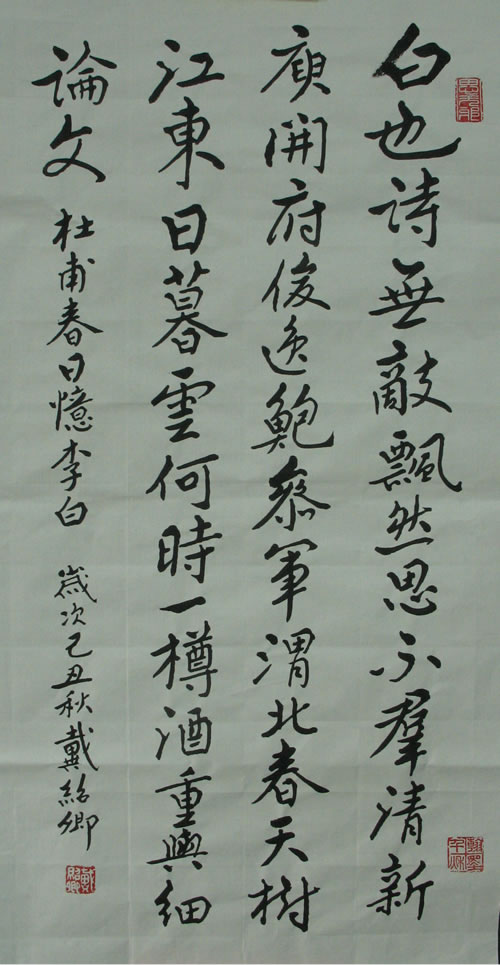 白也詩無敵飄然思不羣清新
庾開府俊逸鮑參軍渭北春天樹
江東日暮雲何時一樽酒重與細
論文 杜甫春日憶李白 歲次己丑秋戴紹卿